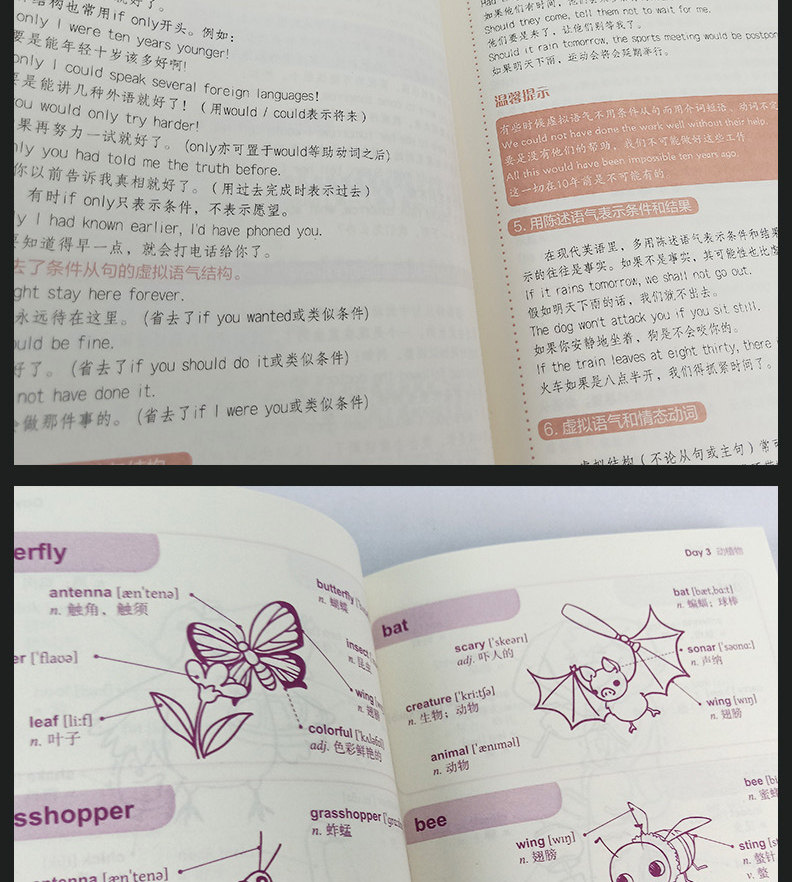 结构也常用if only开头。例如：
only I were ten years younger!
要是能年轻十岁该多好啊！
only I could speak several foreign languages!
要是能讲几种外语就好了！（用would / could表示将来）
you would only try harder!
果再努力一试就好了。(only亦可置于would等助动词之后)
only you had told me the truth before.
你以前告诉我真相就好了。（用过去完成时表示过去）
有时if only只表示条件，不表示愿望。
I had known earlier, I'd have phoned you.
要知道得早一点，就会打电话给你了。
去了条件从句的虚拟语气结构。
ght stay here forever.
永远待在这里。（省去了if you wanted或类似条件）
ould be fine.
好了。（省去了if you should do it或类似条件）
not have done it.
做那件事的。（省去了if I were you或类似条件）
如果他们有时间，
Should they come, tell them not to wait for me.
他们要是来了，让他们别等我了。
Should it rain tomorrow, the sports meeting would be postpon
如果明天下雨，运动会将会延期举行。
温馨提示
有些时候虚拟语气不用条件从句而用介词短语、动词不定
We could not have done the work well without their help.
要是没有他们的帮助，我们不可能做好这些工作
All this would have been impossible ten years ago.
这一切在10年前是不可能有的
5. 用陈述语气表示条件和结果
在现代英语里，多用陈述语气表示条件和结果
示的往往是事实。如果不是事实，其可能性也比虚
If it rains tomorrow, we shall not go out.
假如明天下雨的话，我们就不出去。
The dog won't attack you if you sit still.
如果你安静地坐着，狗是不会咬你的。
If the train leaves at eight thirty, there
火车如果是八点半开，我们得抓紧时间了。
6. 虚拟语气和情态动词
虚拟结构（不论从句或主句）常可
erfly
antenna [æn'tenə]
n. 触角，触须
butterfly
n. 蝴蝶
er ['flaʊə]
insect
n. 昆虫
wing
n. 翅膀
leaf [li:f]
n. 叶子
colorful ['kʌləfəl]
adj. 色彩鲜艳的
sshopper
grasshopper
n. 蚱蜢
antenna [æn'tenə]
Day 3 动植物
bat
bat [bæt,bɑ:t]
n. 蝙蝠；球棒
scary ['skeərɪ]
adj. 吓人的
sonar ['səʊnɑ:]
n. 声纳
creature ['kri:tʃə]
n. 生物；动物
wing [wɪŋ]
n. 翅膀
animal ['ænɪməl]
n. 动物
bee
bee [bi
n. 蜜蜂
wing [wɪŋ]
n. 翅膀
sting [st
n. 螫针
v. 螫